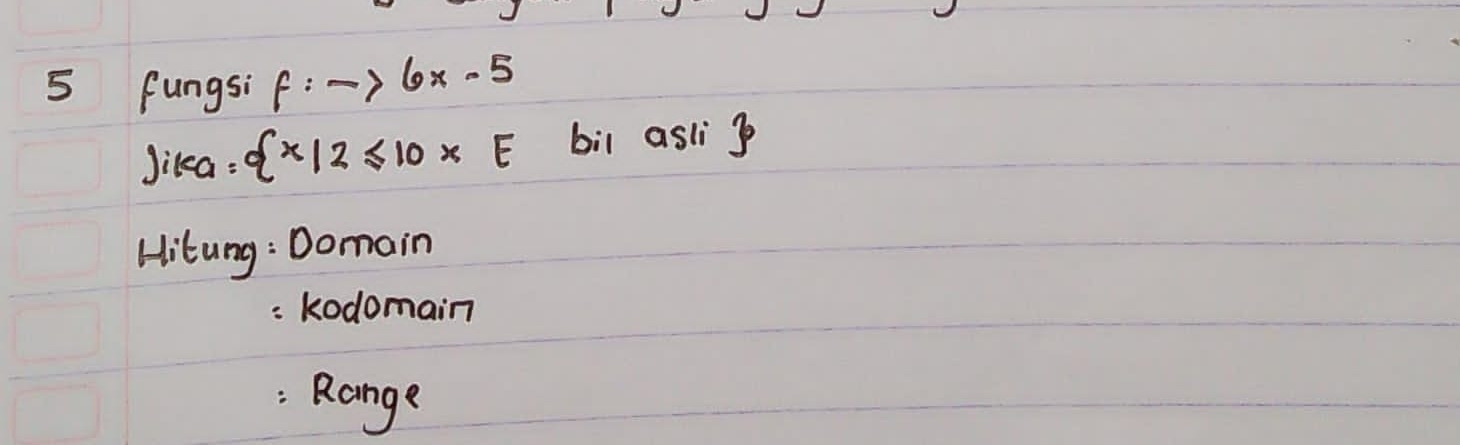 5 fungsi f : → 6x - 5
Jika = {x | 2 ≤ 10 x E bil asli }
Hitung : Domain
: kodomain
: Range